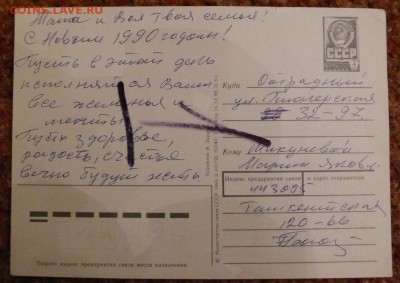 COINS.LAVE.RU
Маша и Вся твоя семья!
С Новым 1990 годом!
Пусть в этот день
исполнятся Ваши
все желанья и
мечты.
Пусть здоровье,
радость, счастье
вечно будут жить
СССР
Куда Отрадный
ул. Пионерская
32-97.
Кому Шикуновой
Индекс предприятия связи и адрес отправителя
443095
Ташкентская
120-66
Пишите индекс предприятия связи места назначения